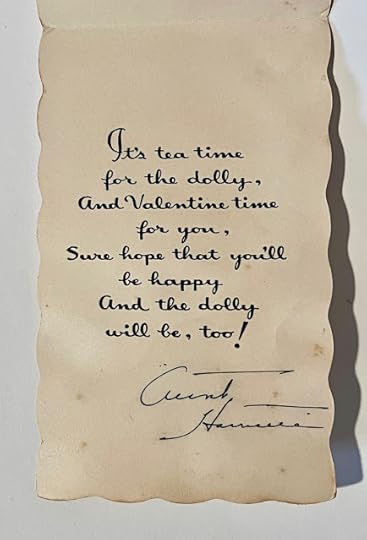 It's tea time
for the dolly,
And Valentine time
for you,
Sure hope that you'll
be happy
And the dolly
will be, too!
Aunt